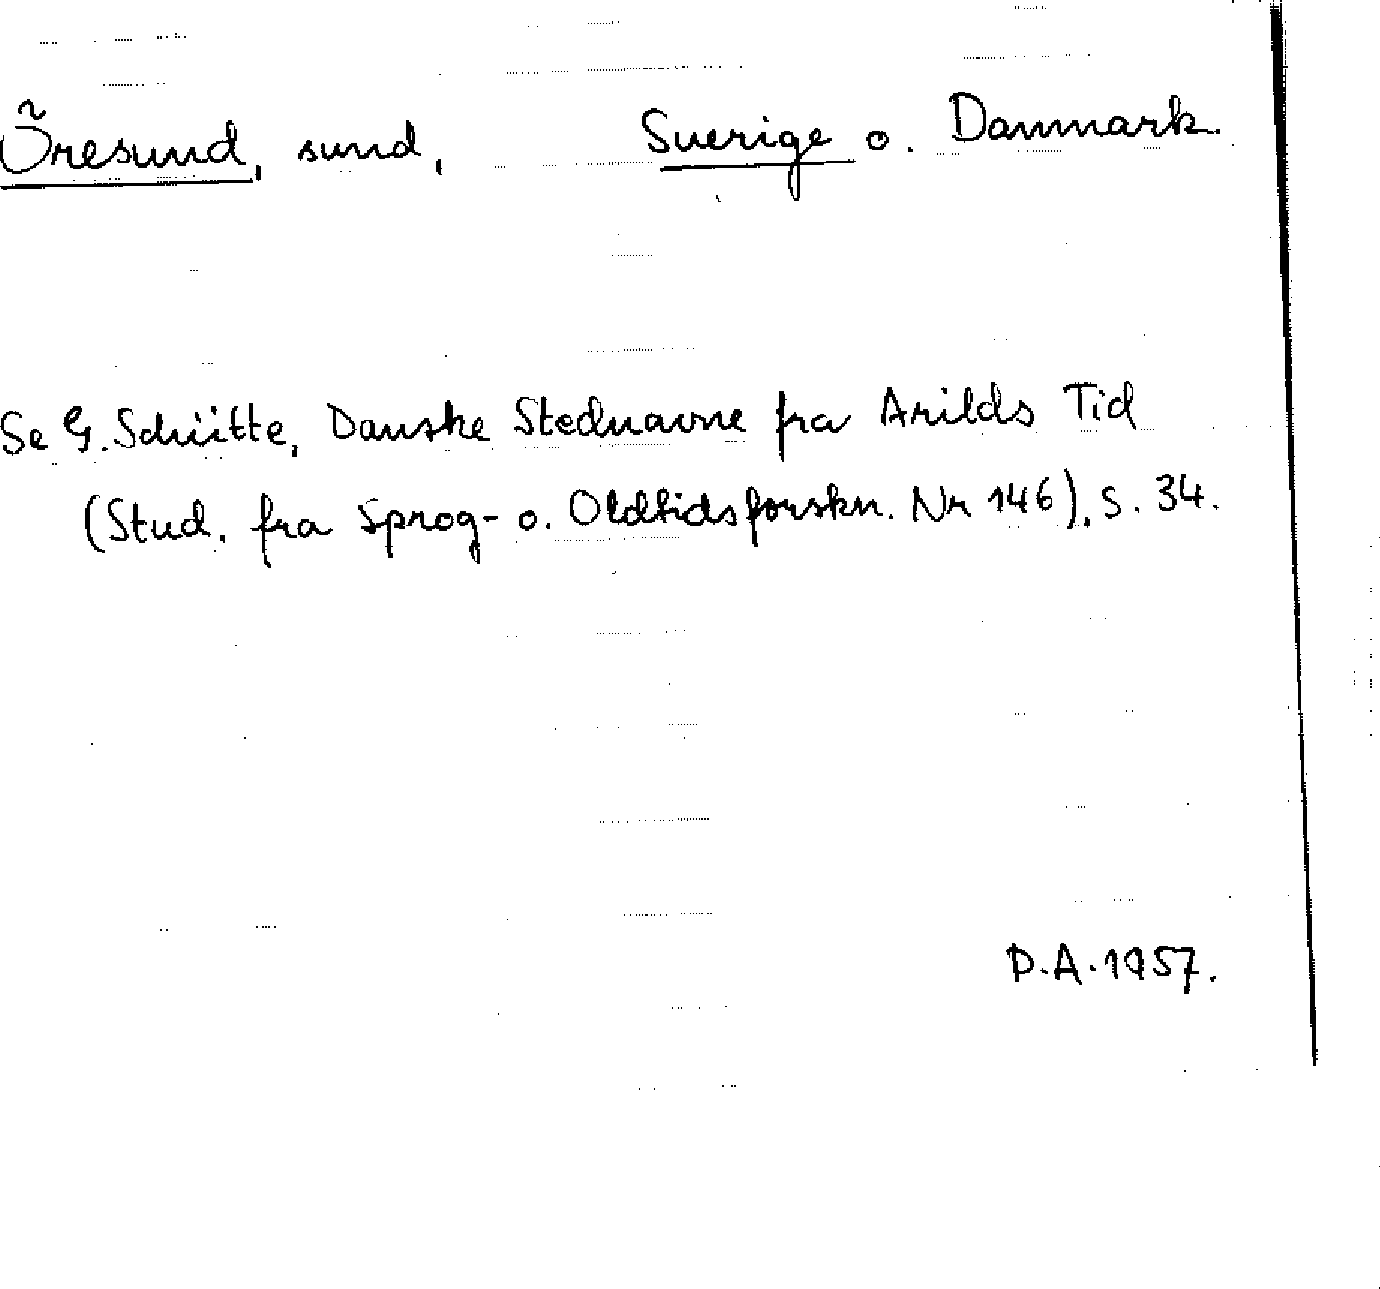 Öresund, sund, Sverige o. Danmark.
Se G. Schütte, Danske Stednavne fra Arilds Tid
(Stud. fra Sprog- o. Oldtidsforskn. Nr 146), s. 34.
D.A. 1957.